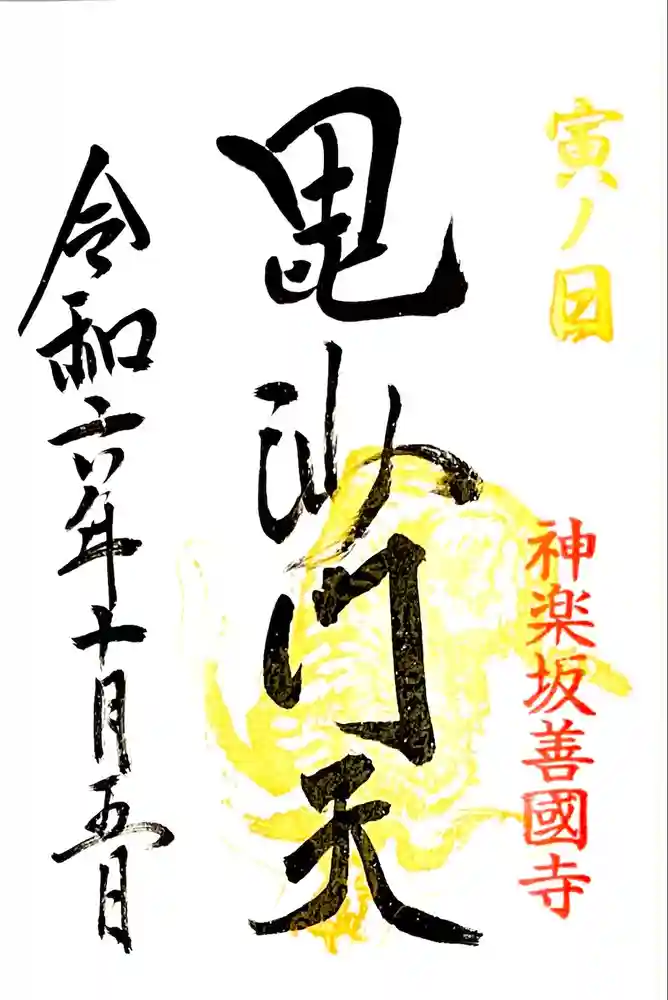 寅ノ日
神楽坂善國寺
毘沙門天
令和六年十月五日